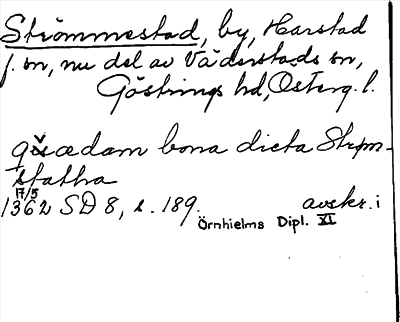 Strömmestad, by, Harstad
f. sn, nu del av Väderstads sn,
Göstrings hd, Österg. l.
quædam bona dicta Strøm-
statha
17/5
1362 SD 8, s. 189. avskr. i
Örnhielms Dipl. XI